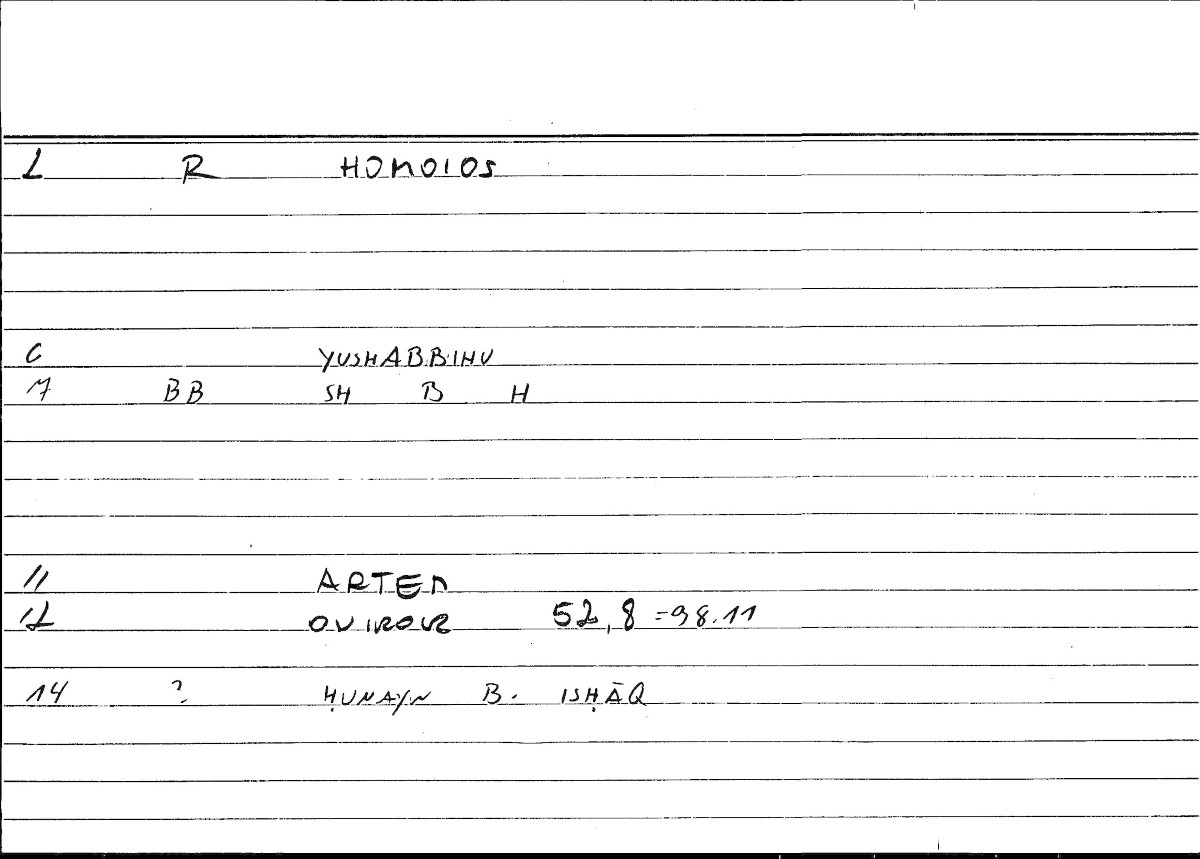 2 R HOMOIOS
6 YUSHABBIHU
7 BB SH B H
11 ARTEM
12 ONIROCR 52,8 =98.11
14 ? ḤUNAYN B. ISḤĀQ